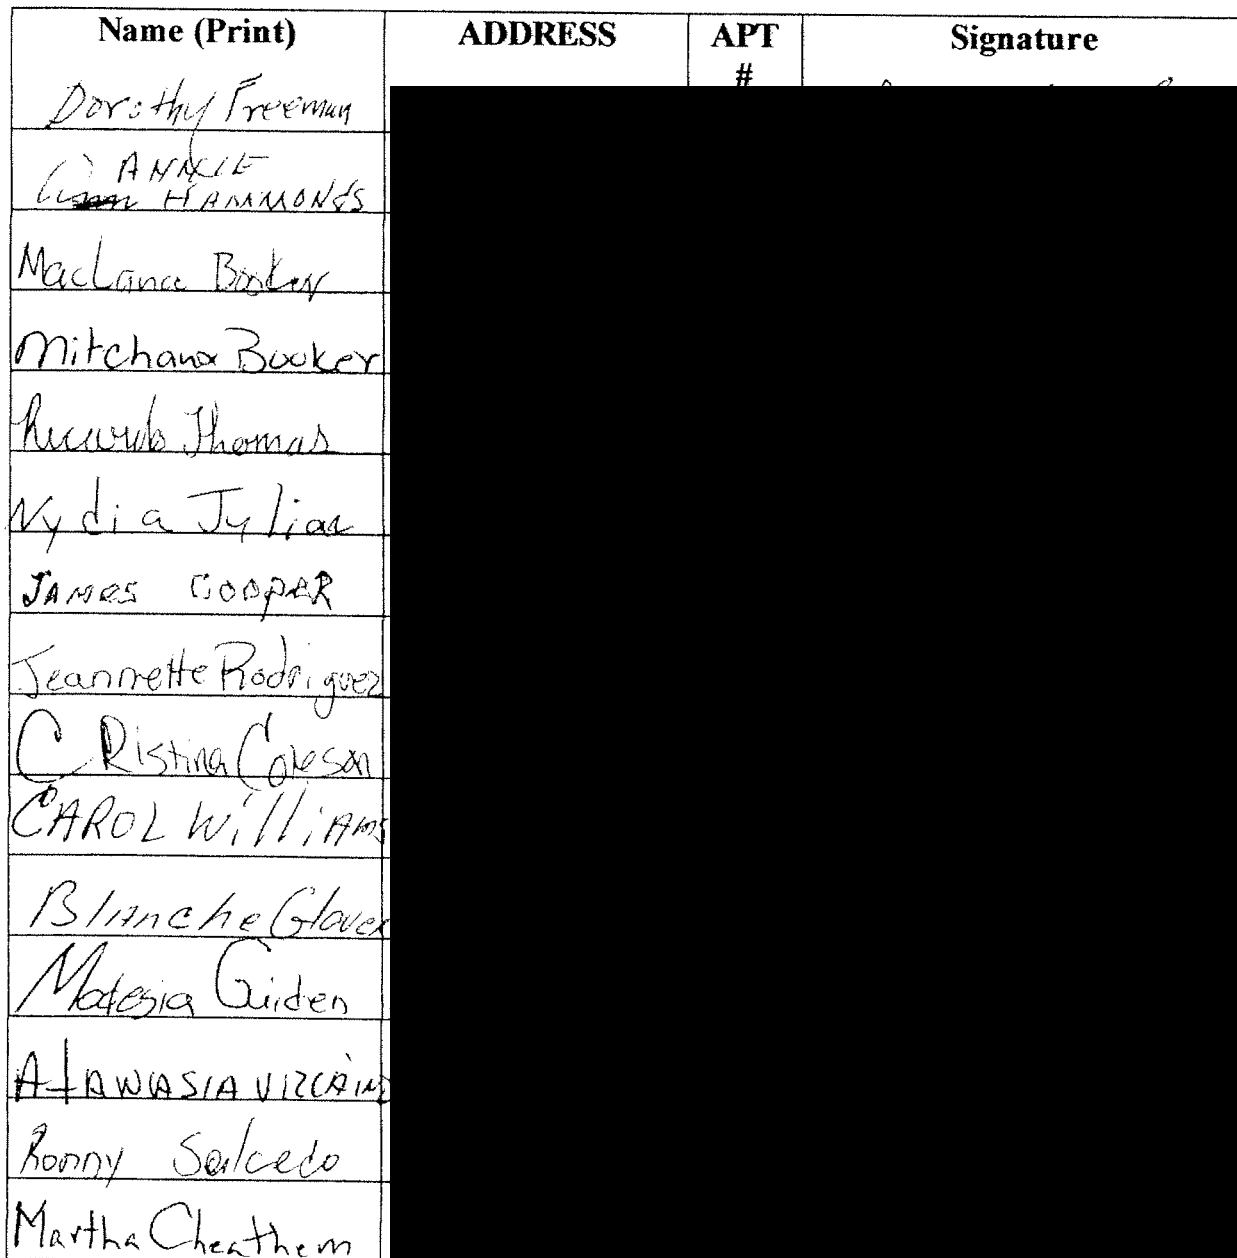 Name (Print) ADDRESS APT # Signature
Dorothy Freeman
ANNIE
HAMMONDS
Booker
Mitchana Booker
Ricardo Thomas
Nydia Julian
JAMES COOPER
Jeannette Rodriguez
CRistina Coleson
CAROL WilliAMS
Blanche Glover
Modesia Guiden
AtANASIA VIZCAINO
Ronny Salcedo
Martha Cheathem